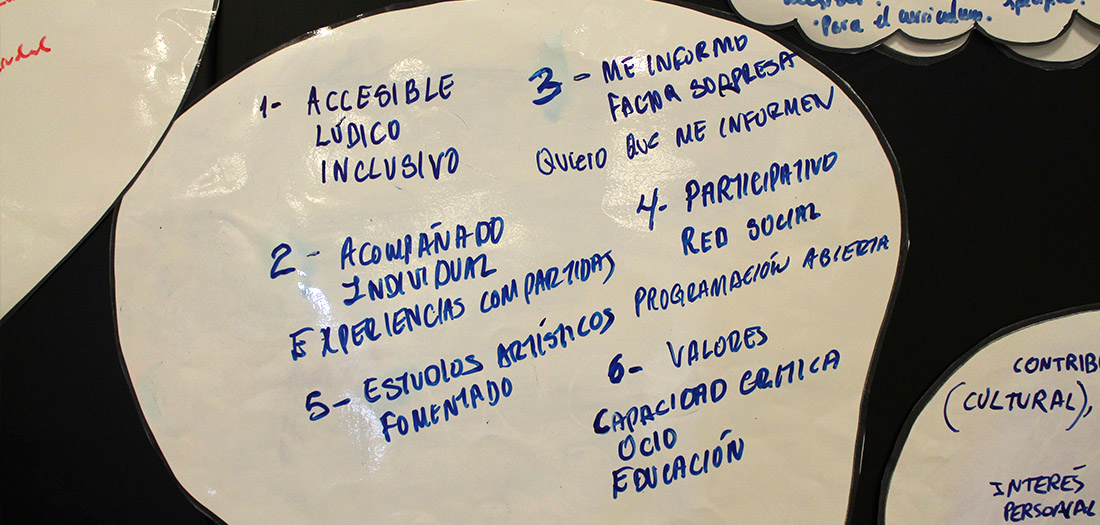 1- ACCESIBLE
LÚDICO
INCLUSIVO
2- ACOMPAÑADO
INDIVIDUAL
EXPERIENCIAS COMPARTIDAS
3- ME INFORMO
FACTOR SORPRESA
QUIERO QUE ME INFORMEN
4- PARTICIPATIVO
RED SOCIAL
PROGRAMACIÓN ABIERTA
5- ESTUDIOS ARTÍSTICOS
FOMENTADO
6- VALORES
CAPACIDAD CRITICA
OCIO
EDUCACIÓN
·Para el curriculum.
CONTRIB
(CULTURAL),
INTERÉS
PERSONAL